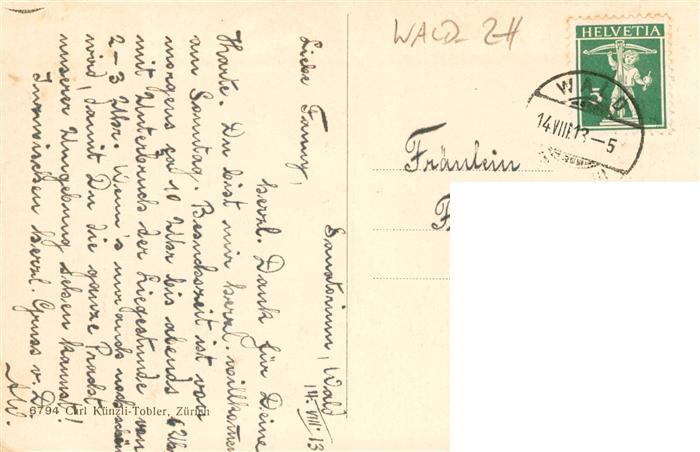 WALD ZH
HELVETIA
5
WALD
14.VIII.13.-5
Fräulein
Sanatorium, Wald
14. VIII. 13
Liebe Fanny,
herzl. Dank für Deine
Karte. Du bist mir herzl. willkommen
am Sonntag. Besuchszeit ist von
morgens ca 10 Uhr bis abends 6 Uhr
mit Unterbruch der Liegestunde von
2-3 Uhr. Wenn's nur auch noch schön
wird, damit Du die ganze Pracht
unserer Umgebung sehen kannst!
Inzwischen herzl. Gruss v. D.
AW.
6794 Carl Künzli-Tobler, Zürich